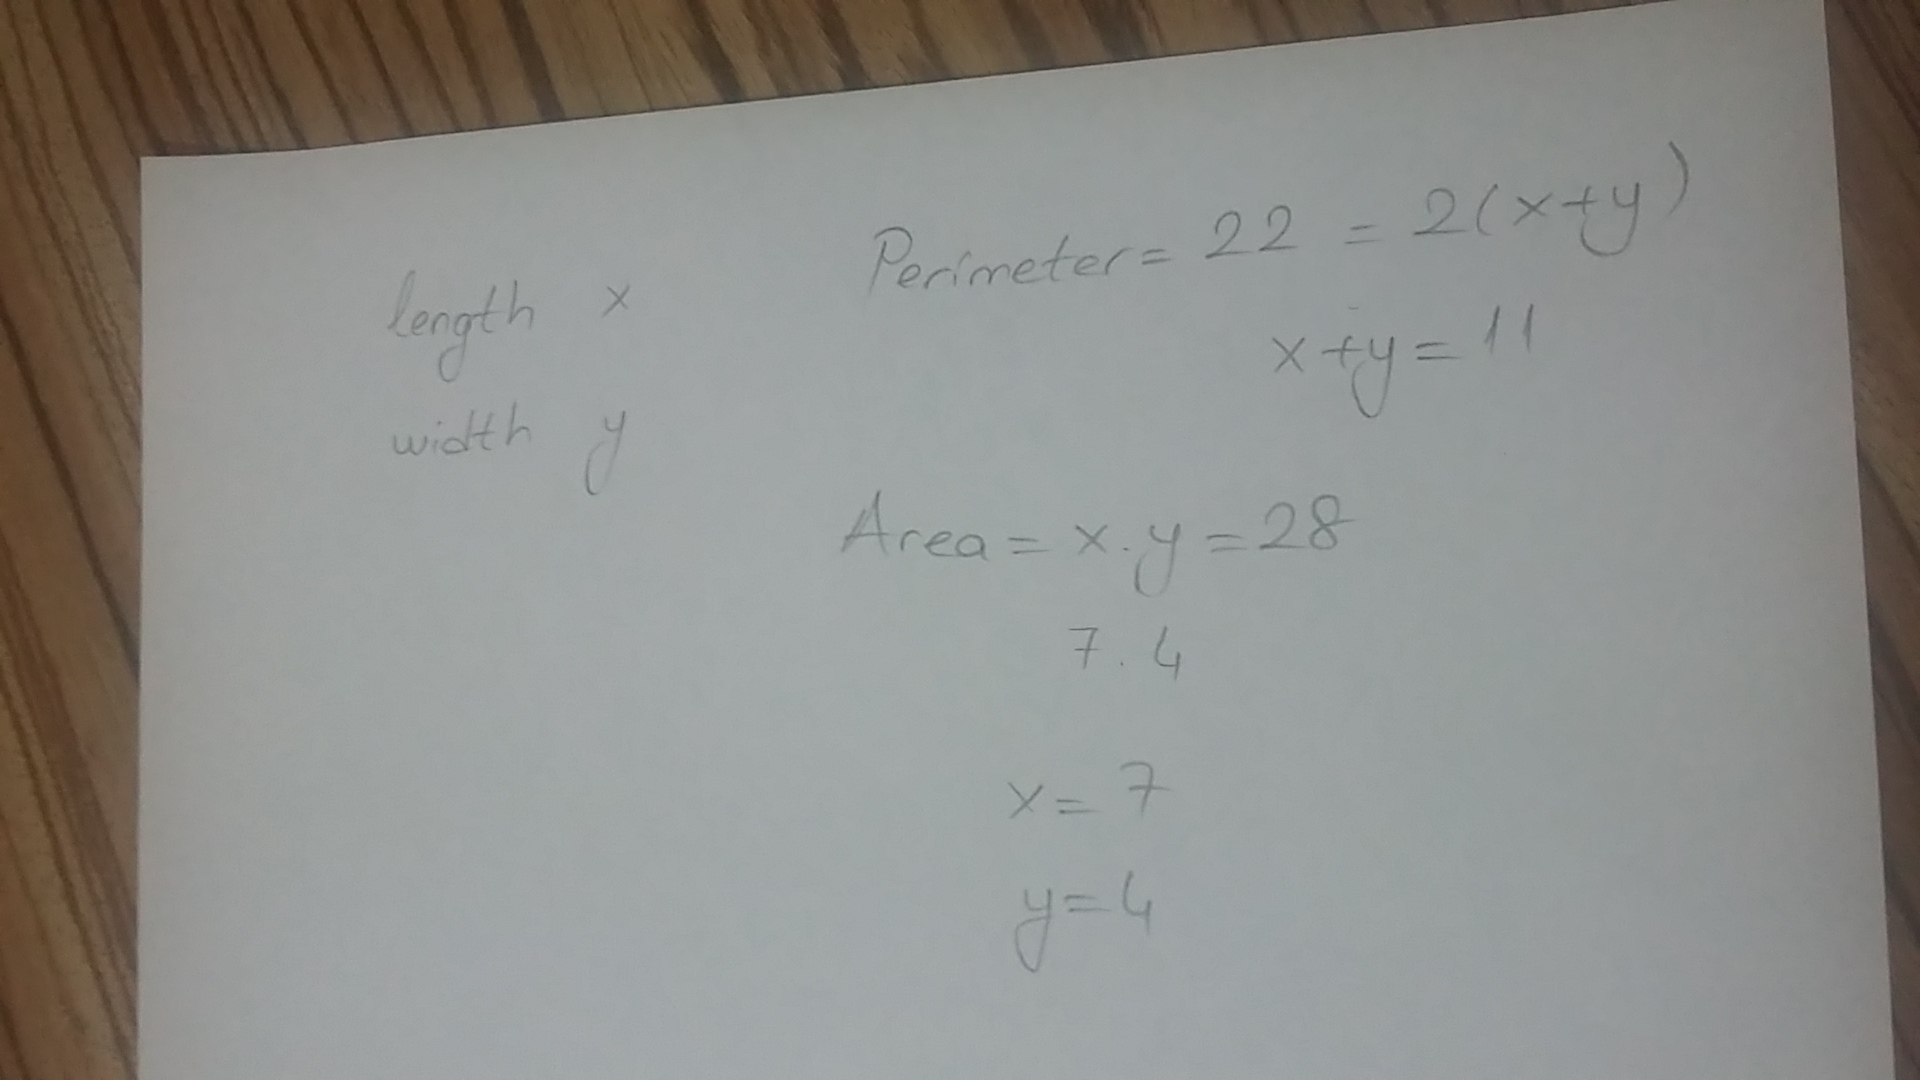 length x
width y
Perimeter = 22 = 2(x+y)
x+y = 11
Area = x.y = 28
7.4
x = 7
y = 4